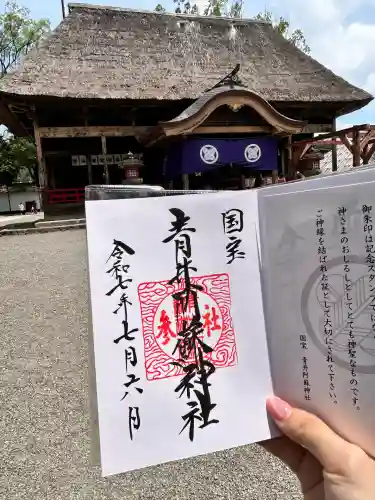 国宝
青井阿蘇神社
参拝
令和七年七月六日
御朱印は記念スタンプではなく、
神さまのおしるしとしてとても神聖なものです。
ご神縁を結ばれた証として大切にされて下さい。
国宝 青井阿蘇神社